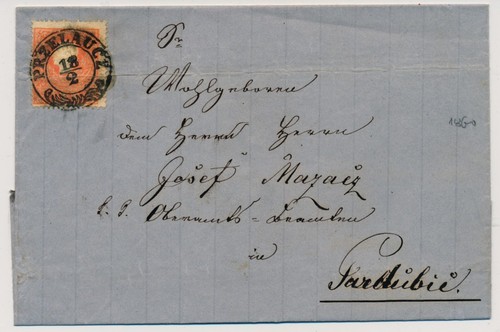 PRZELAUCZ
18/2
Sr
Wohlgeboren
dem Herrn Herrn
Josef Mazacz
Oberamts=Beamten
in
Pardubic.
1860